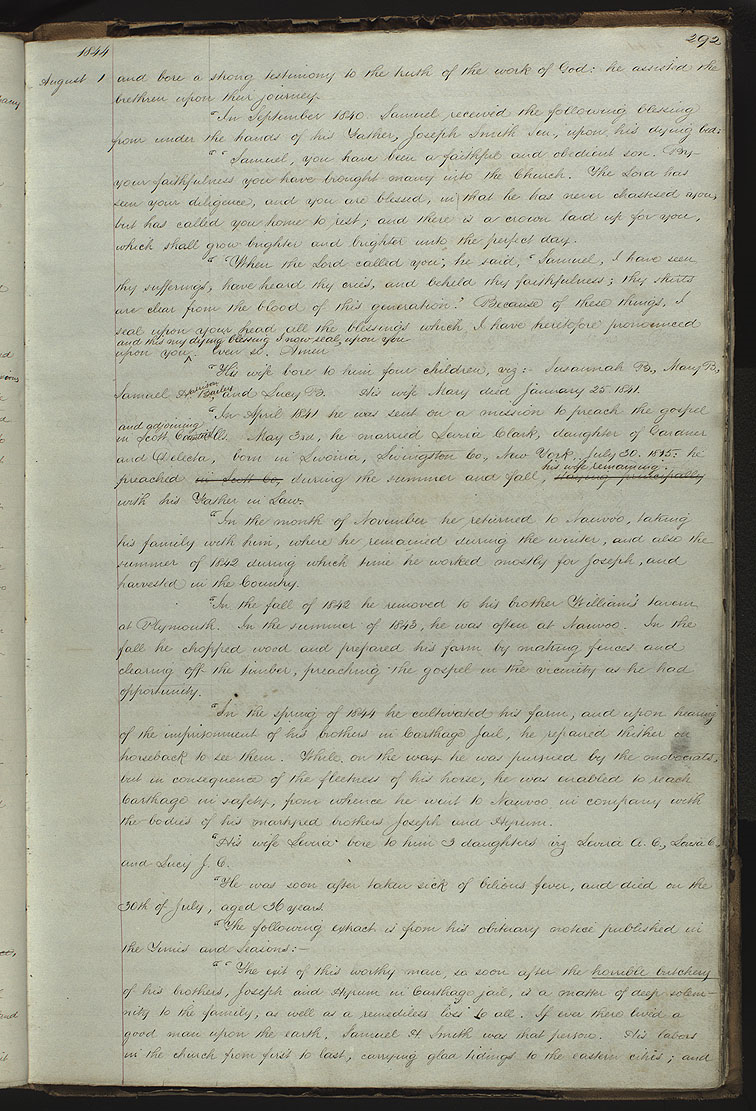 292
1844
August 1 and bore a strong testimony to the truth of the work of God: he assisted the
brethren upon their journey.
"In September 1840. Samuel received the following blessing
from under the hands of his Father, Joseph Smith Senr, upon his dying bed:
"“Samuel, you have been a faithful and obedient son. By
your faithfulness you have brought many into the Church. The Lord has
seen your diligence, and you are blessed, in that he has never chastised you,
but has called you home to rest; and there is a crown laid up for you,
which shall grow brighter and brighter unto the perfect day.
"“When the Lord called you, he said, “Samuel, I have seen
thy sufferings, have heard thy cries, and beheld thy faithfulness; thy skirts
are clear from the blood of this generation." Because of these things, I
seal upon your head all the blessings which I have heretofore pronounced
and this my dying blessing I now seal upon you
upon you. Even so. Amen
"His wife bore to him four children, viz:— Susannah B., Mary B,
Samuel Harrison Bailey, and Lucy B. His wife Mary died January 25. 1841.
"In April 1841 he was sent on a mission to preach the gospel
and adjoining
in Scott Counties. May 3rd, he married Levira Clark, daughter of Gardner
and Delecta, born in Livonia, Livingston Co., New York, July 30. 1815: he
his wife remaining
preached in Scott Co, during the summer and fall, staying principally
with his Father in Law.
"In the month of November he returned to Nauvoo, taking
his family with him, where he remained during the winter, and also the
summer of 1842 during which time he worked mostly for Joseph, and
harvested in the Country.
"In the fall of 1842 he removed to his brother William's tavern
at Plymouth. In the summer of 1843, he was often at Nauvoo. In the
fall he chopped wood and prepared his farm by making fences and
clearing off the timber, preaching the gospel in the vicinity as he had
opportunity.
"In the spring of 1844 he cultivated his farm, and upon hearing
of the imprisonment of his brothers in Carthage Jail, he repaired thither on
horseback to see them. While on the way he was pursued by the mobocrats,
but in consequence of the fleetness of his horse, he was enabled to reach
Carthage in safety, from whence he went to Nauvoo in company with
the bodies of his martyred brothers Joseph and Hyrum.
"His wife Levira bore to him 3 daughters viz Levira A. C., Louisa C.
and Lucy J. C.
"He was soon after taken sick of bilious fever, and died on the
30th of July, aged 36 years.
"The following extract is from his obituary notice published in
the Times and Seasons:—
"“The exit of this worthy man, so soon after the horrible butchery
of his brothers, Joseph and Hyrum in Carthage jail, is a matter of deep solem-
nity to the family, as well as a remediless loss to all. If ever there lived a
good man upon the earth, Samuel H. Smith was that person. His labors
in the church from first to last, carrying glad tidings to the eastern cities; and